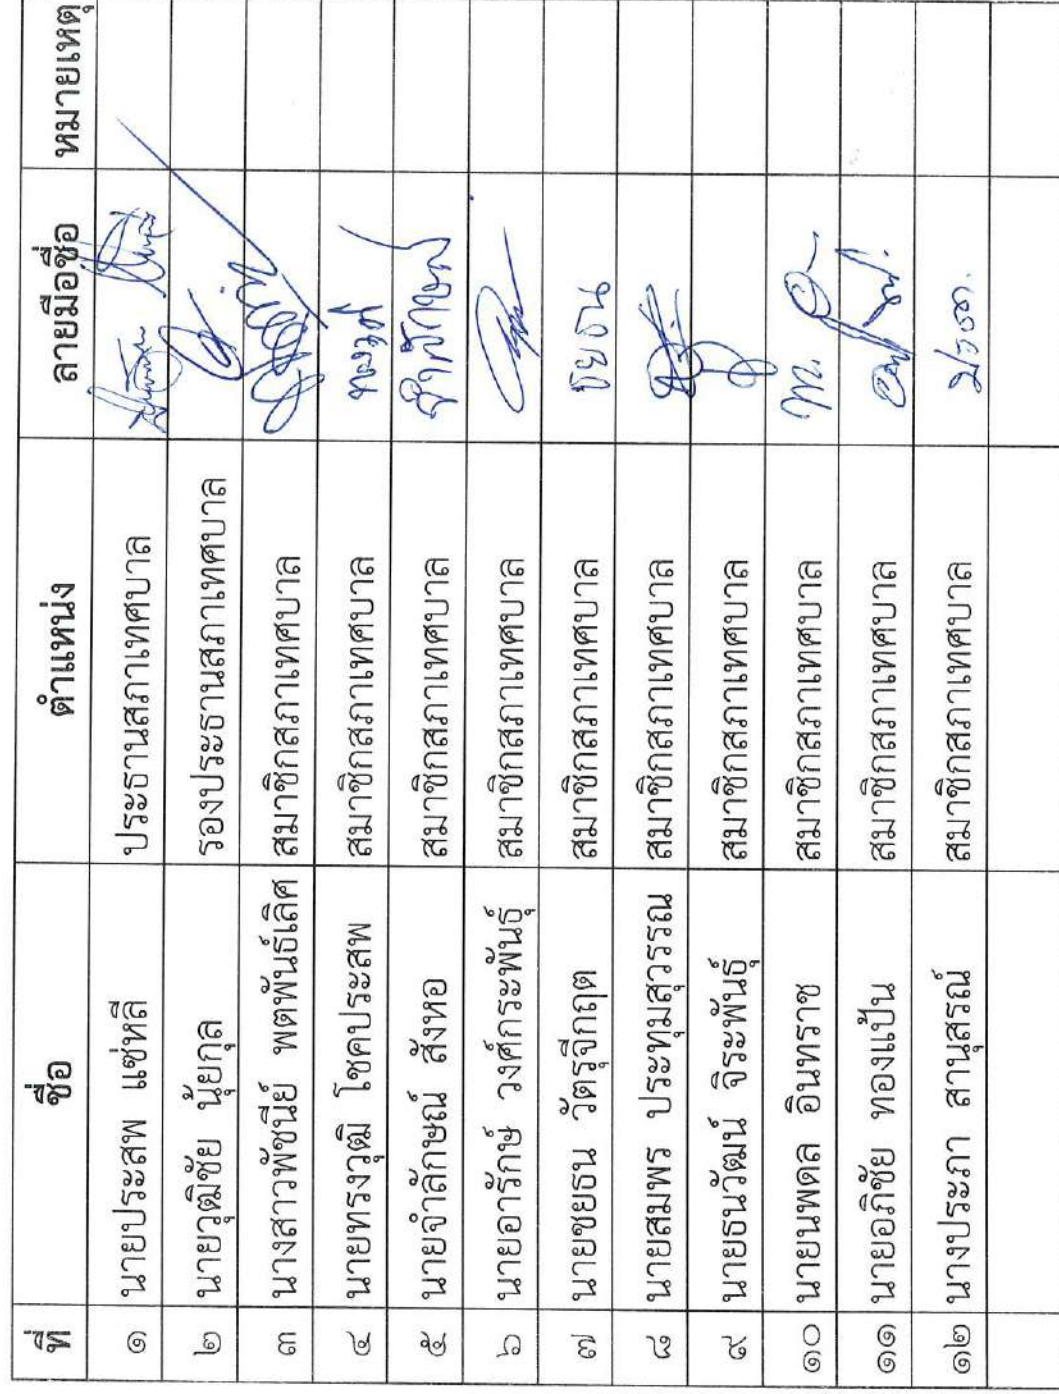 ที่ ชื่อ ตำแหน่ง ลายมือชื่อ หมายเหตุ
๑ นายประสพ แซ่หลี ประธานสภาเทศบาล
๒ นายวุฒิชัย นุ้ยกุล รองประธานสภาเทศบาล
๓ นางสาวพัชนีย์ พตพันธ์เลิศ สมาชิกสภาเทศบาล
๔ นายทรงวุฒิ โชคประสพ สมาชิกสภาเทศบาล
๕ นายจำลักษณ์ สังหอ สมาชิกสภาเทศบาล
๖ นายอารักษ์ วงศ์กระพันธุ์ สมาชิกสภาเทศบาล
๗ นายชยธน วัตรุจีกฤต สมาชิกสภาเทศบาล ชยธน
๘ นายสมพร ประทุมสุวรรณ สมาชิกสภาเทศบาล
๙ นายธนวัฒน์ จิระพันธุ์ สมาชิกสภาเทศบาล
๑๐ นายนพดล อินทราช สมาชิกสภาเทศบาล
๑๑ นายอภิชัย ทองแป้น สมาชิกสภาเทศบาล
๑๒ นางประภา สานุสรณ์ สมาชิกสภาเทศบาล